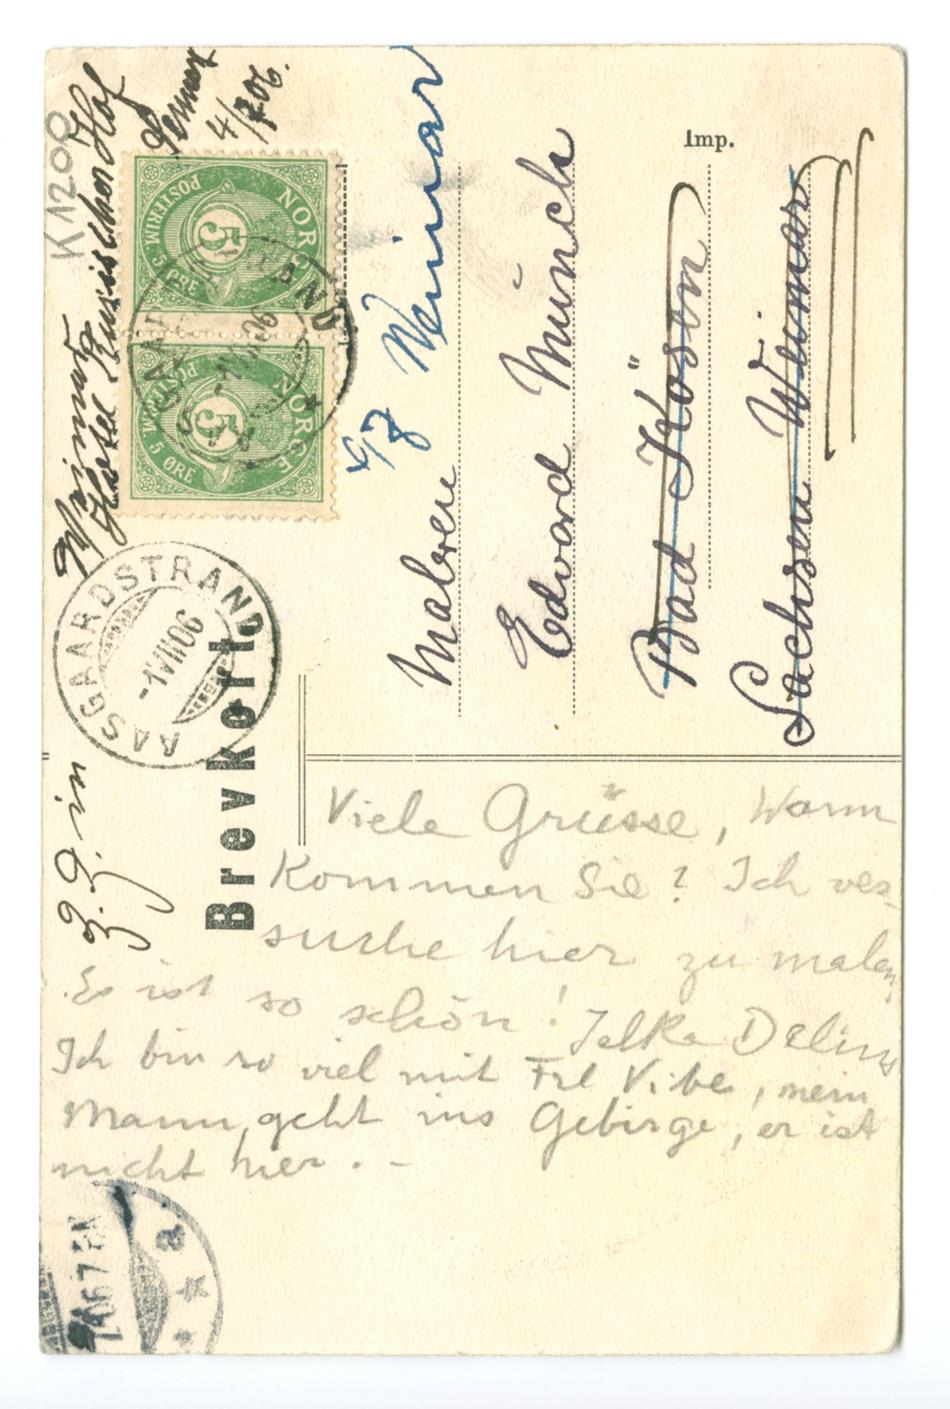 K1200
z. Z. in Weimar
Hotel Russischer Hof
4/7 06.
NORGE
POSTFRIM. 5 ØRE
5
NORGE
POSTFRIM. 5 ØRE
5
AASGAARDSTRAND
AASGAARDSTRAND
Brevkort
Imp.
4/7 Weimar
Maleren
Edvard Münch
Bad Kösen
Sachsen Weimar
Viele Grüsse, Wann
kommen Sie? Ich ver-
suche hier zu malen,
Es ist so schön! Jelka Delius
Ich bin so viel mit Frl Vibe, mein
Mann geht ins Gebirge, er ist
nicht hier. –